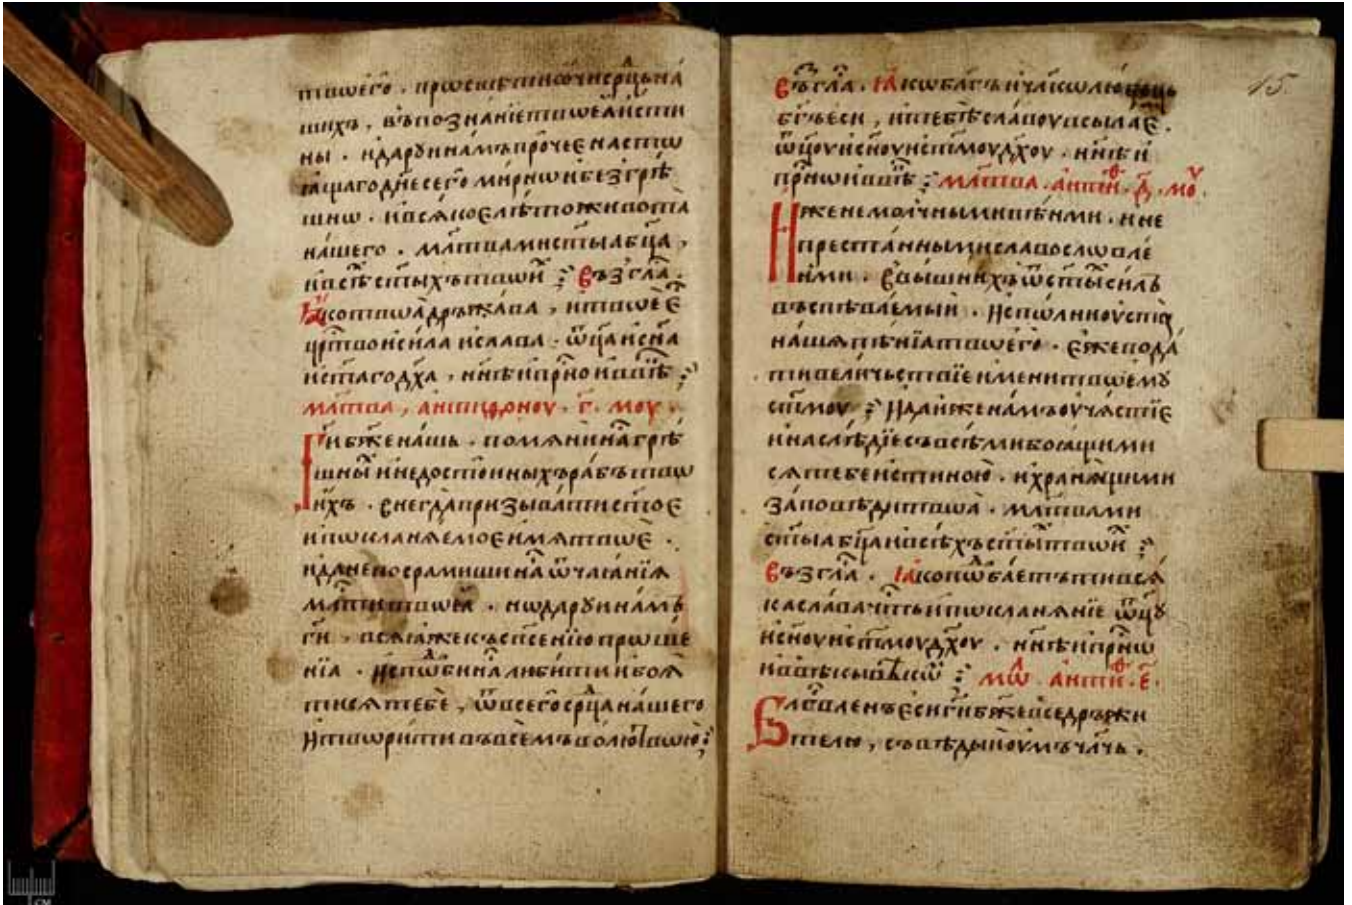 твоего̀ . просвѣти ѻчи срⷣца на
шихъ , въ познанїе твоеа̀ исти
ны . и даруи намъ прочее настѡ
ѧщаго днѐ сего̀ мирнѡ и безгрѣ
шнѡ . и всѧкое лѣто живота
нашего . млⷭ҇твами ст҃ыа бц҃а ,
и всѣⷯ ст҃ыхъ твоиⷯ : Възглⷭ҇а .
Ꙗко твоа̀ дръжава , и твоѐ е҆
црⷭ҇тво и сила и слава . ѿц҃а и сн҃а
и ст҃аго дх҃а , нн҃ѣ и прⷭ҇но и в вѣⷦ҇ :
млт҃ва , антифоноу . г҃ . моу .
Ги҃ бж҃е нашь . помѧни наⷭ҇ грѣ
шныⷯ и недостоиныхъ рабъ твѡ
ихъ . Внегда̀ призывати ст҃ое
и покланѧемое имѧ твоѐ .
и да не посрамиши наⷭ҇ ѿ чаанїа
млⷭ҇ти твоеа̀ . но даруи намъ
ги҃ , всѧ ꙗже къ сп҃сенїю проше
нїа . И сподⷪ҇би наⷭ҇ любити и боꙗ
тисѧ тебе , ѿ всего срⷣца нашего
И творити въ всемъ волю твою :
Възглⷭ҇а . Ꙗко бл҃гъ и чл҃колюбець
бг҃ъ еси , и тебѣ славоу всылаеⷨ .
ѿц҃оу и сн҃оу и ст҃моу дх҃оу . нн҃ѣ и
прⷭ҇нѡ и в вѣⷦ҇ : млт҃ва . антиⷴ . д҃ . моⷹ .
Иже немолчными пѣнми . и не
престанными славословле
нми . Ѿ вышнихъ и ст҃ыⷯ силъ
въспѣваемыи . Исполни оуста
наша пѣнїа твоего . Еже пода
ти величьствїе имени твоему
ст҃моу : И даи же намъ оучастїе
и наслѣдїе съ всѣми боѧщими
сѧ тебе истиною . и хранѧщими
заповѣди твоа . млт҃вами
ст҃ыа бц҃а и всѣхъ ст҃ыⷯ твоиⷯ :
Възглⷭ҇а . Ꙗко подⷪ҇баетъ ти всѧ
ка слава чⷭ҇ть и покланѧнїе ѿц҃у
и сн҃оу и ст҃моу дх҃оу . нн҃ѣ и прⷭ҇нѡ
и в вѣкы вѣкѡⷨ : моⷧ антиⷴ . е҃ .
Блⷭ҇влен еси ги҃ бж҃е вседръжи
телю , съвѣдыи оумъ чл҃чь .
15.